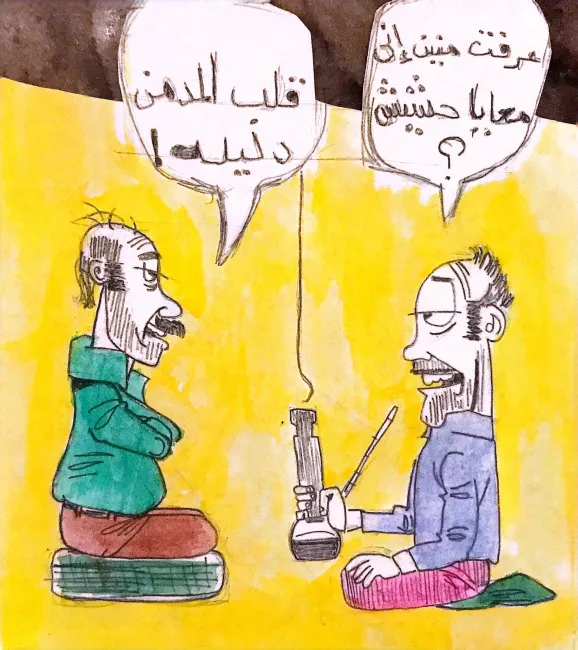 عرفت منين إنى
معايا حشيش
؟
قلب المدمن
دليله!